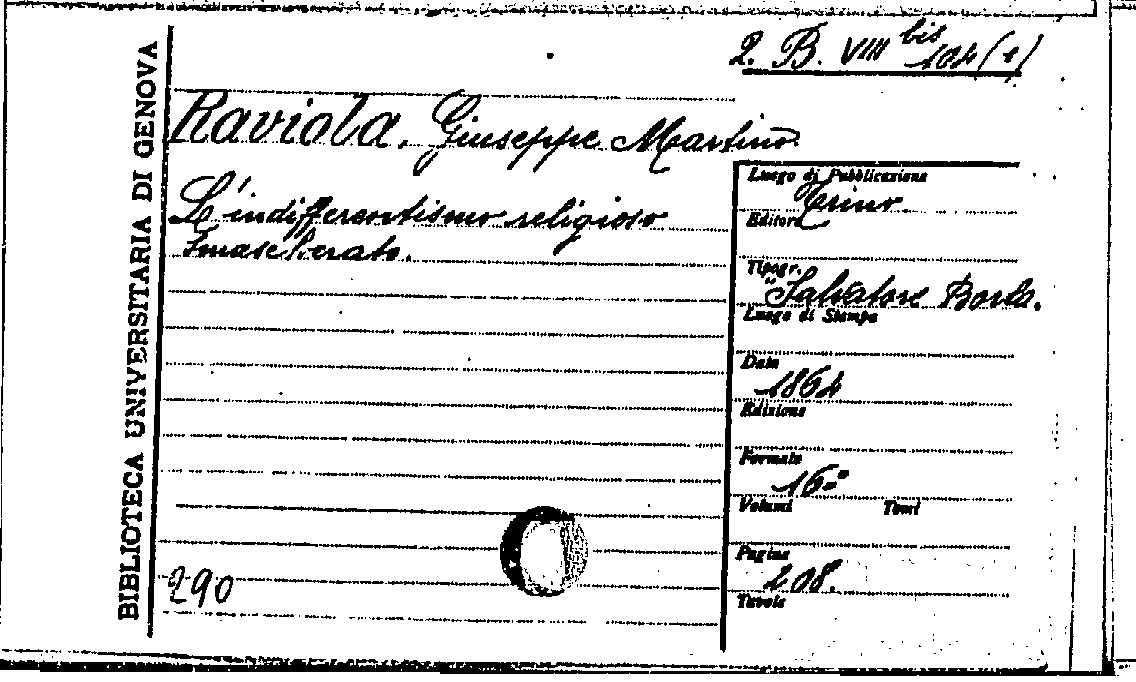 2. B. VIII bis 104 (1)
BIBLIOTECA UNIVERSITARIA DI GENOVA
Raviola, Giuseppe Martino
L'indifferentismo religioso
smascherato.
Luogo di Pubblicazione
Torino.
Editore
Tipogr.
Salvatore Borla.
Luogo di Stampa
Data
1864
Edizione
Formato
16°
Volumi Tomi
Pagine
208.
Tavole
290